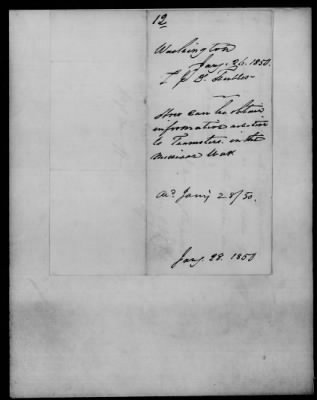 12
Washington
Jany. 26. 1850.
How can he obtain
information relative
to Teamsters in the
Mexican War
An'd Jany 28/50.
Jany. 28. 1850